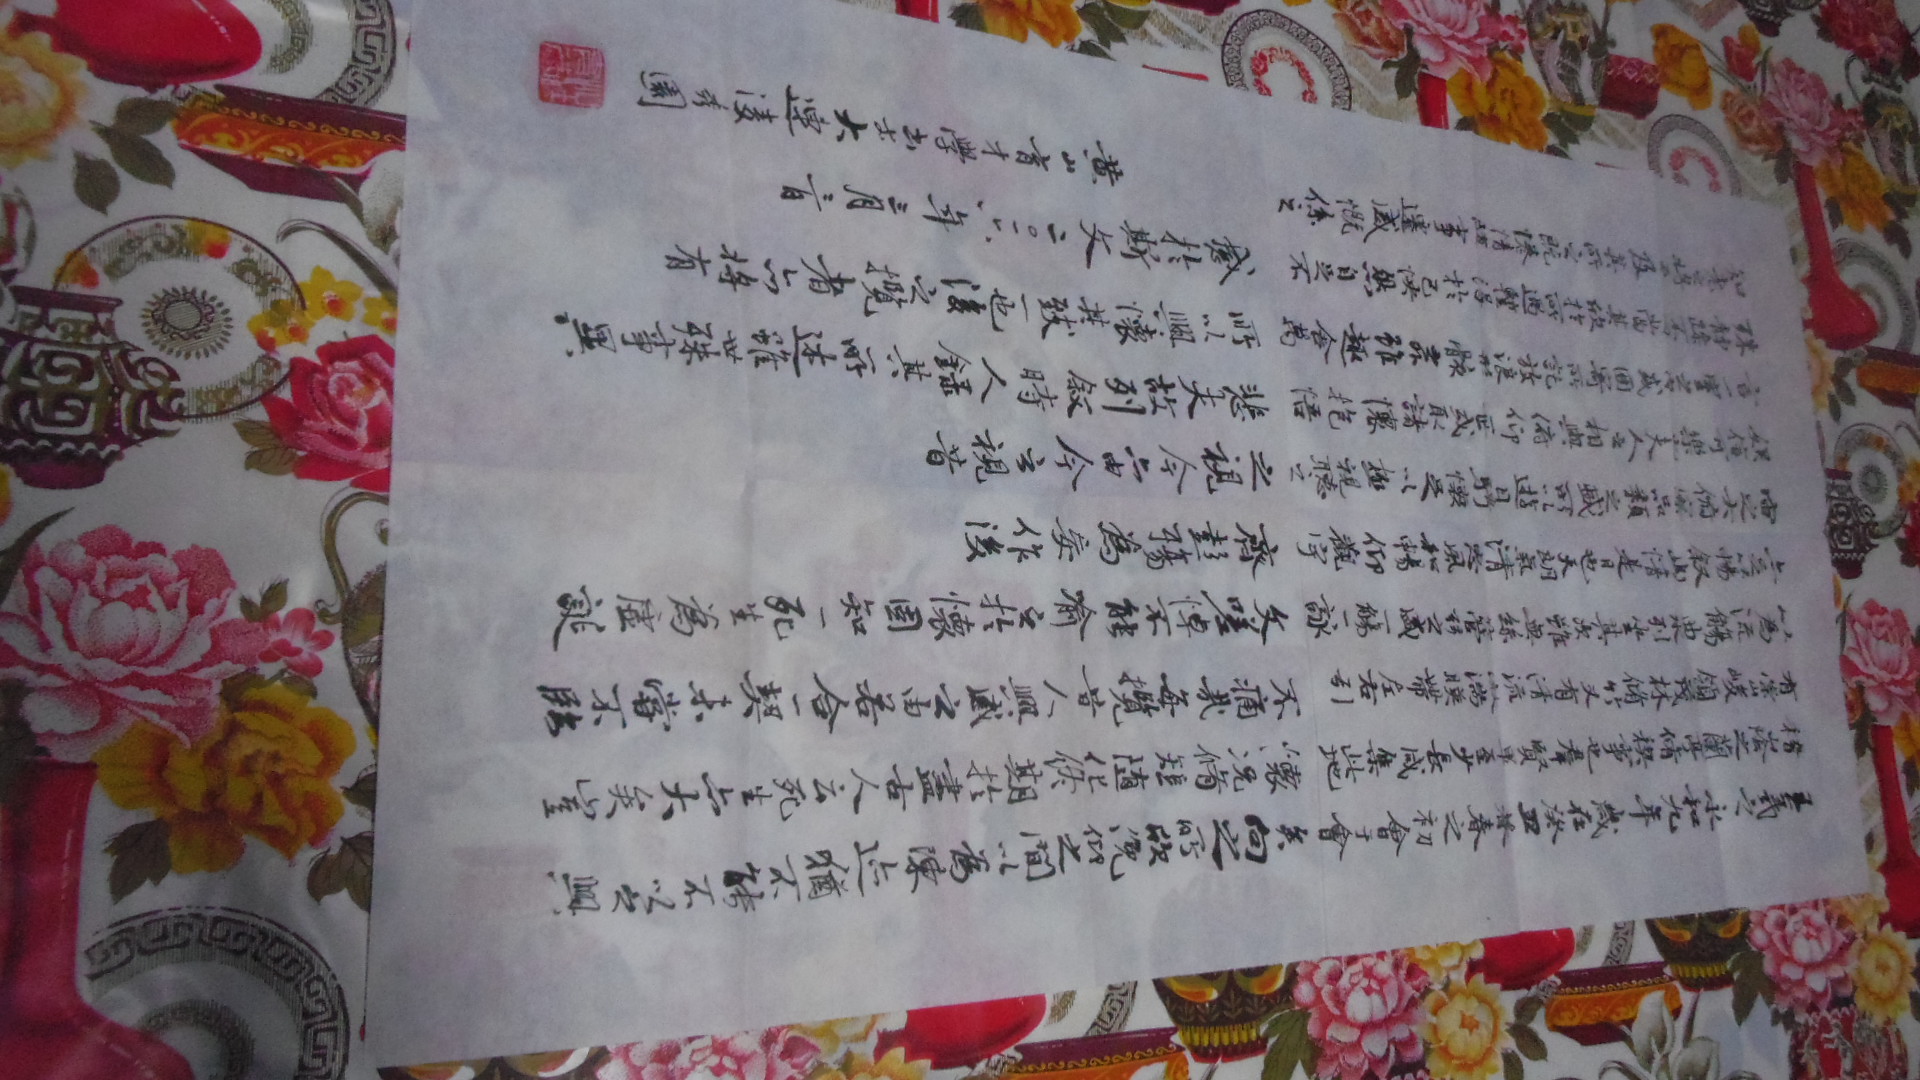 王羲之永和九年歲在癸丑暮春之初會于會
稽山陰之蘭亭脩禊事也羣賢畢至少長咸集此地
有崇山峻領茂林脩竹又有清流激湍映帶左右引
以為流觴曲水列坐其次雖無絲竹管弦之盛一觴一詠
亦足以暢敘幽情是日也天朗氣清惠風和暢仰觀宇
宙之大俯察品類之盛所以遊目騁懷足以極視聽之
娛信可樂也夫人之相與俯仰一世或取諸懷抱悟
言一室之內或因寄所託放浪形骸之外雖趣舍萬
殊靜躁不同當其欣於所遇蹔得於己快然自足不
知老之將至及其所之既惓情隨事遷感慨係之
矣向之所欣俛仰之間以為陳迹猶不能不以之興
懷況脩短隨化終期於盡古人云死生亦大矣豈
不痛哉每攬昔人興感之由若合一契未嘗不臨
文嗟悼不能喻之於懷固知一死生為虛誕
齊彭殤為妄作後
之視今亦由今之視昔
悲夫故列敘時人錄其所述雖世殊事異
所以興懷其致一也後之攬者亦將有
感於斯文二〇一八年三月
黃山